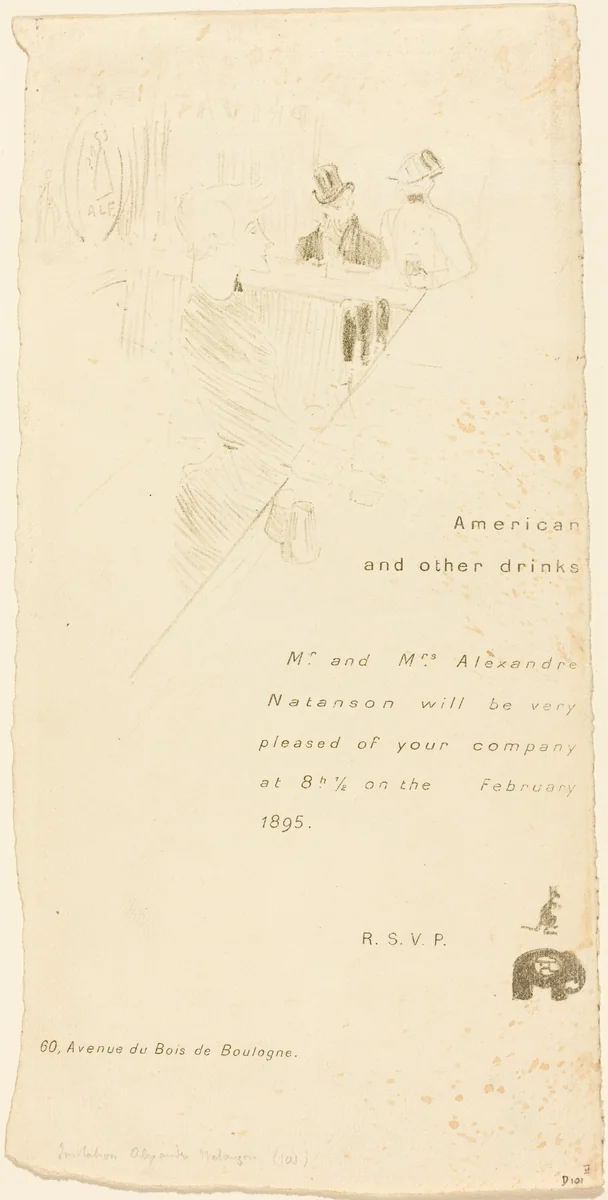 ALE
American
and other drinks
Mr. and Mrs. Alexandre
Natanson will be very
pleased of your company
at 8h ½ on the February
1895.
R. S. V. P.
60, Avenue du Bois de Boulogne.
Invitation Alexandre Natanson (101)
II
D101